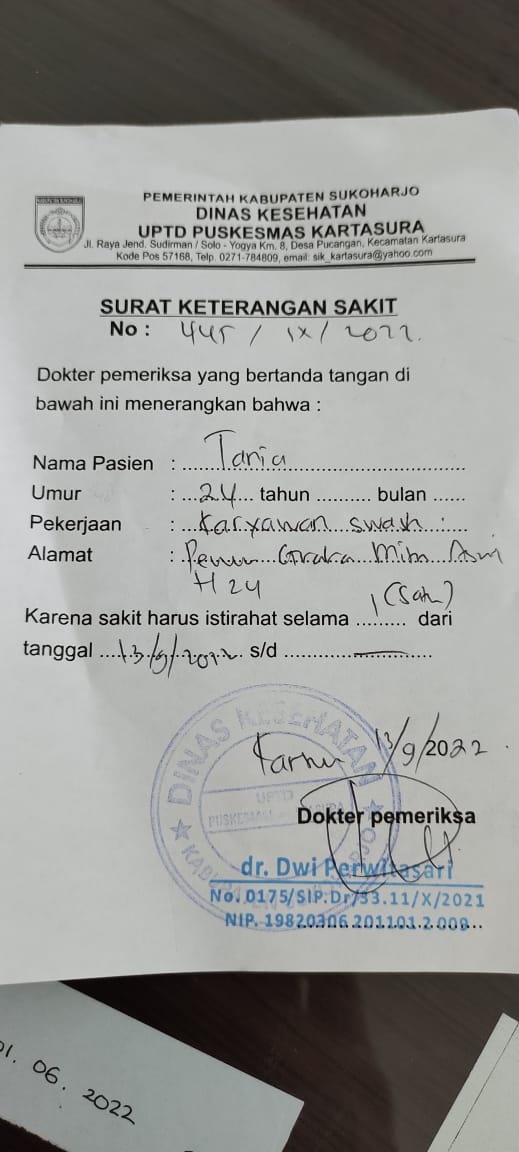 PEMERINTAH KABUPATEN SUKOHARJO
DINAS KESEHATAN
UPTD PUSKESMAS KARTASURA
Jl. Raya Jend. Sudirman / Solo - Yogya Km. 8, Desa Pucangan, Kecamatan Kartasura
Kode Pos 57168, Telp. 0271-784809, email: sik_kartasura@yahoo.com
SURAT KETERANGAN SAKIT
No : 445 / IX / 2022.
Dokter pemeriksa yang bertanda tangan di
bawah ini menerangkan bahwa :
Nama Pasien : Tania
Umur : 24 tahun .......... bulan ......
Pekerjaan : Karyawan
Alamat : Graha
H 24
Karena sakit harus istirahat selama 1 (Satu) dari
tanggal 13/9/2022 s/d
13/9/2022
DINAS KESEHATAN
UPTD
Dokter pemeriksa
dr. Dwi Perwitasari
No. 0175/SIP.Dr/33.11/X/2021
NIP. 19820306.201101.2.009
01. 06. 2022